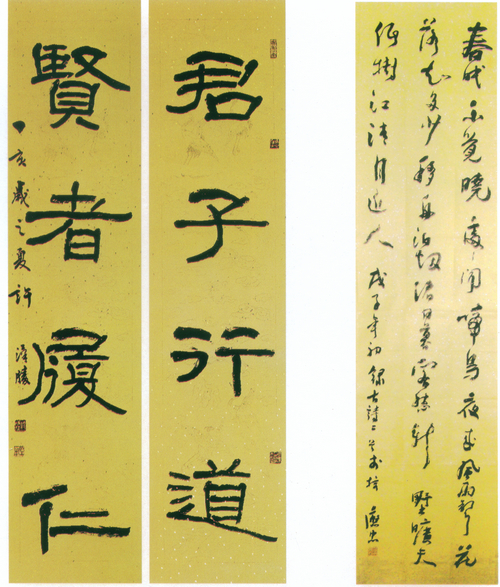 君子行道
賢者履仁
丁亥歲之夏許
春眠不覺曉處處聞啼鳥夜來風雨聲花
落知多少移舟泊烟渚日暮客愁新野曠天
低樹江清月近人戊子年初錄古詩二首